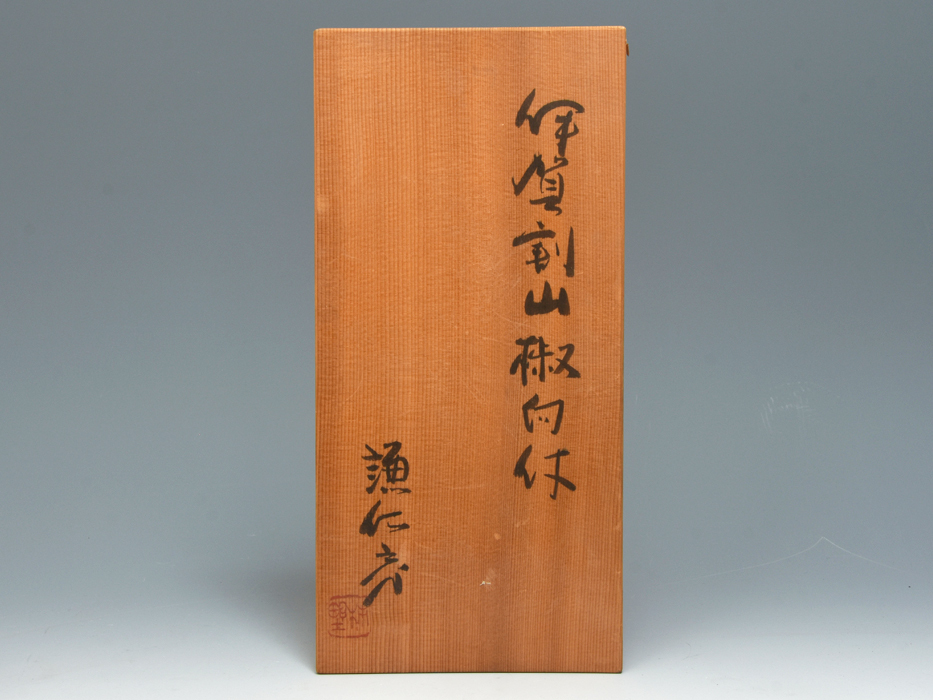 伊賀割山椒向付
謙仁彦